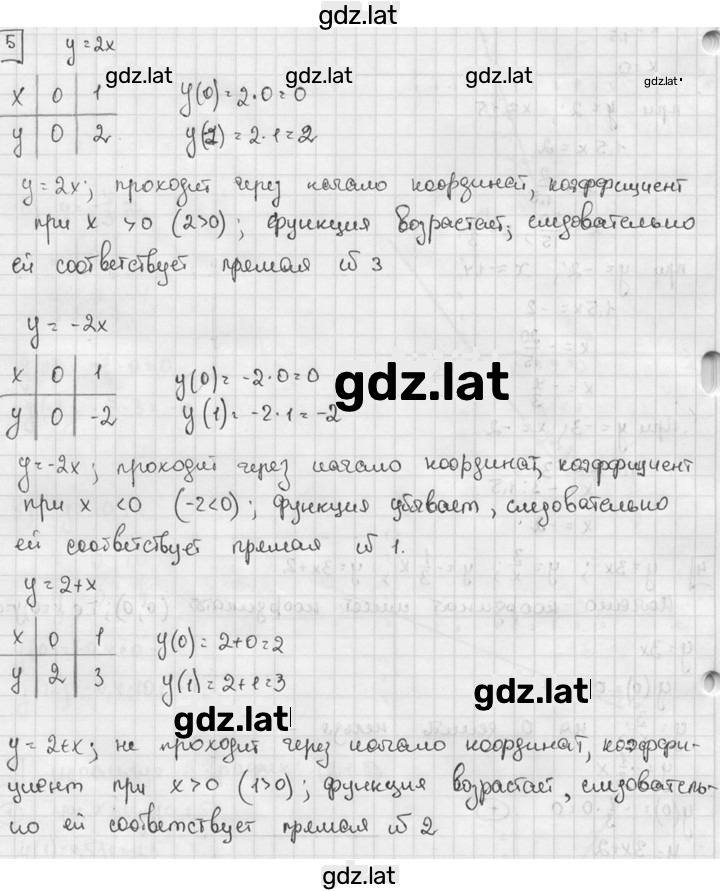 gdz.lat
5 y = 2x
gdz.lat gdz.lat gdz.lat
x 0 1 y(0) = 2·0 = 0
y 0 2 y(1) = 2·1 = 2
y = 2x; проходит через начало координат, коэффициент
при x >0 (2>0); функция возрастает; следовательно
ей соответствует прямая № 3
y = -2x
gdz.lat
x 0 1 y(0) = -2·0 = 0
y 0 -2 y(1) = -2·1 = -2
y = -2x; проходит через начало координат, коэффициент
при x <0 (-2<0); функция убывает, следовательно
ей соответствует прямая № 1.
y = 2+x
x 0 1 y(0) = 2+0 = 2
y 2 3 y(1) = 2+1 = 3
gdz.lat
gdz.lat
y = 2+x; не проходит через начало координат, коэффи-
циент при x>0 (1>0); функция возрастает, следователь-
но ей соответствует прямая № 2
gdz.lat